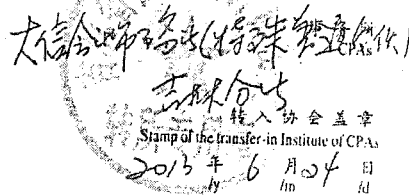 大信会计师事务所(特殊普通合伙)
CPAs
吉林分所
转入协会盖章
Stamp of the transfer-in Institute of CPAs
2013 年 6 月 04 日
/y /m /d